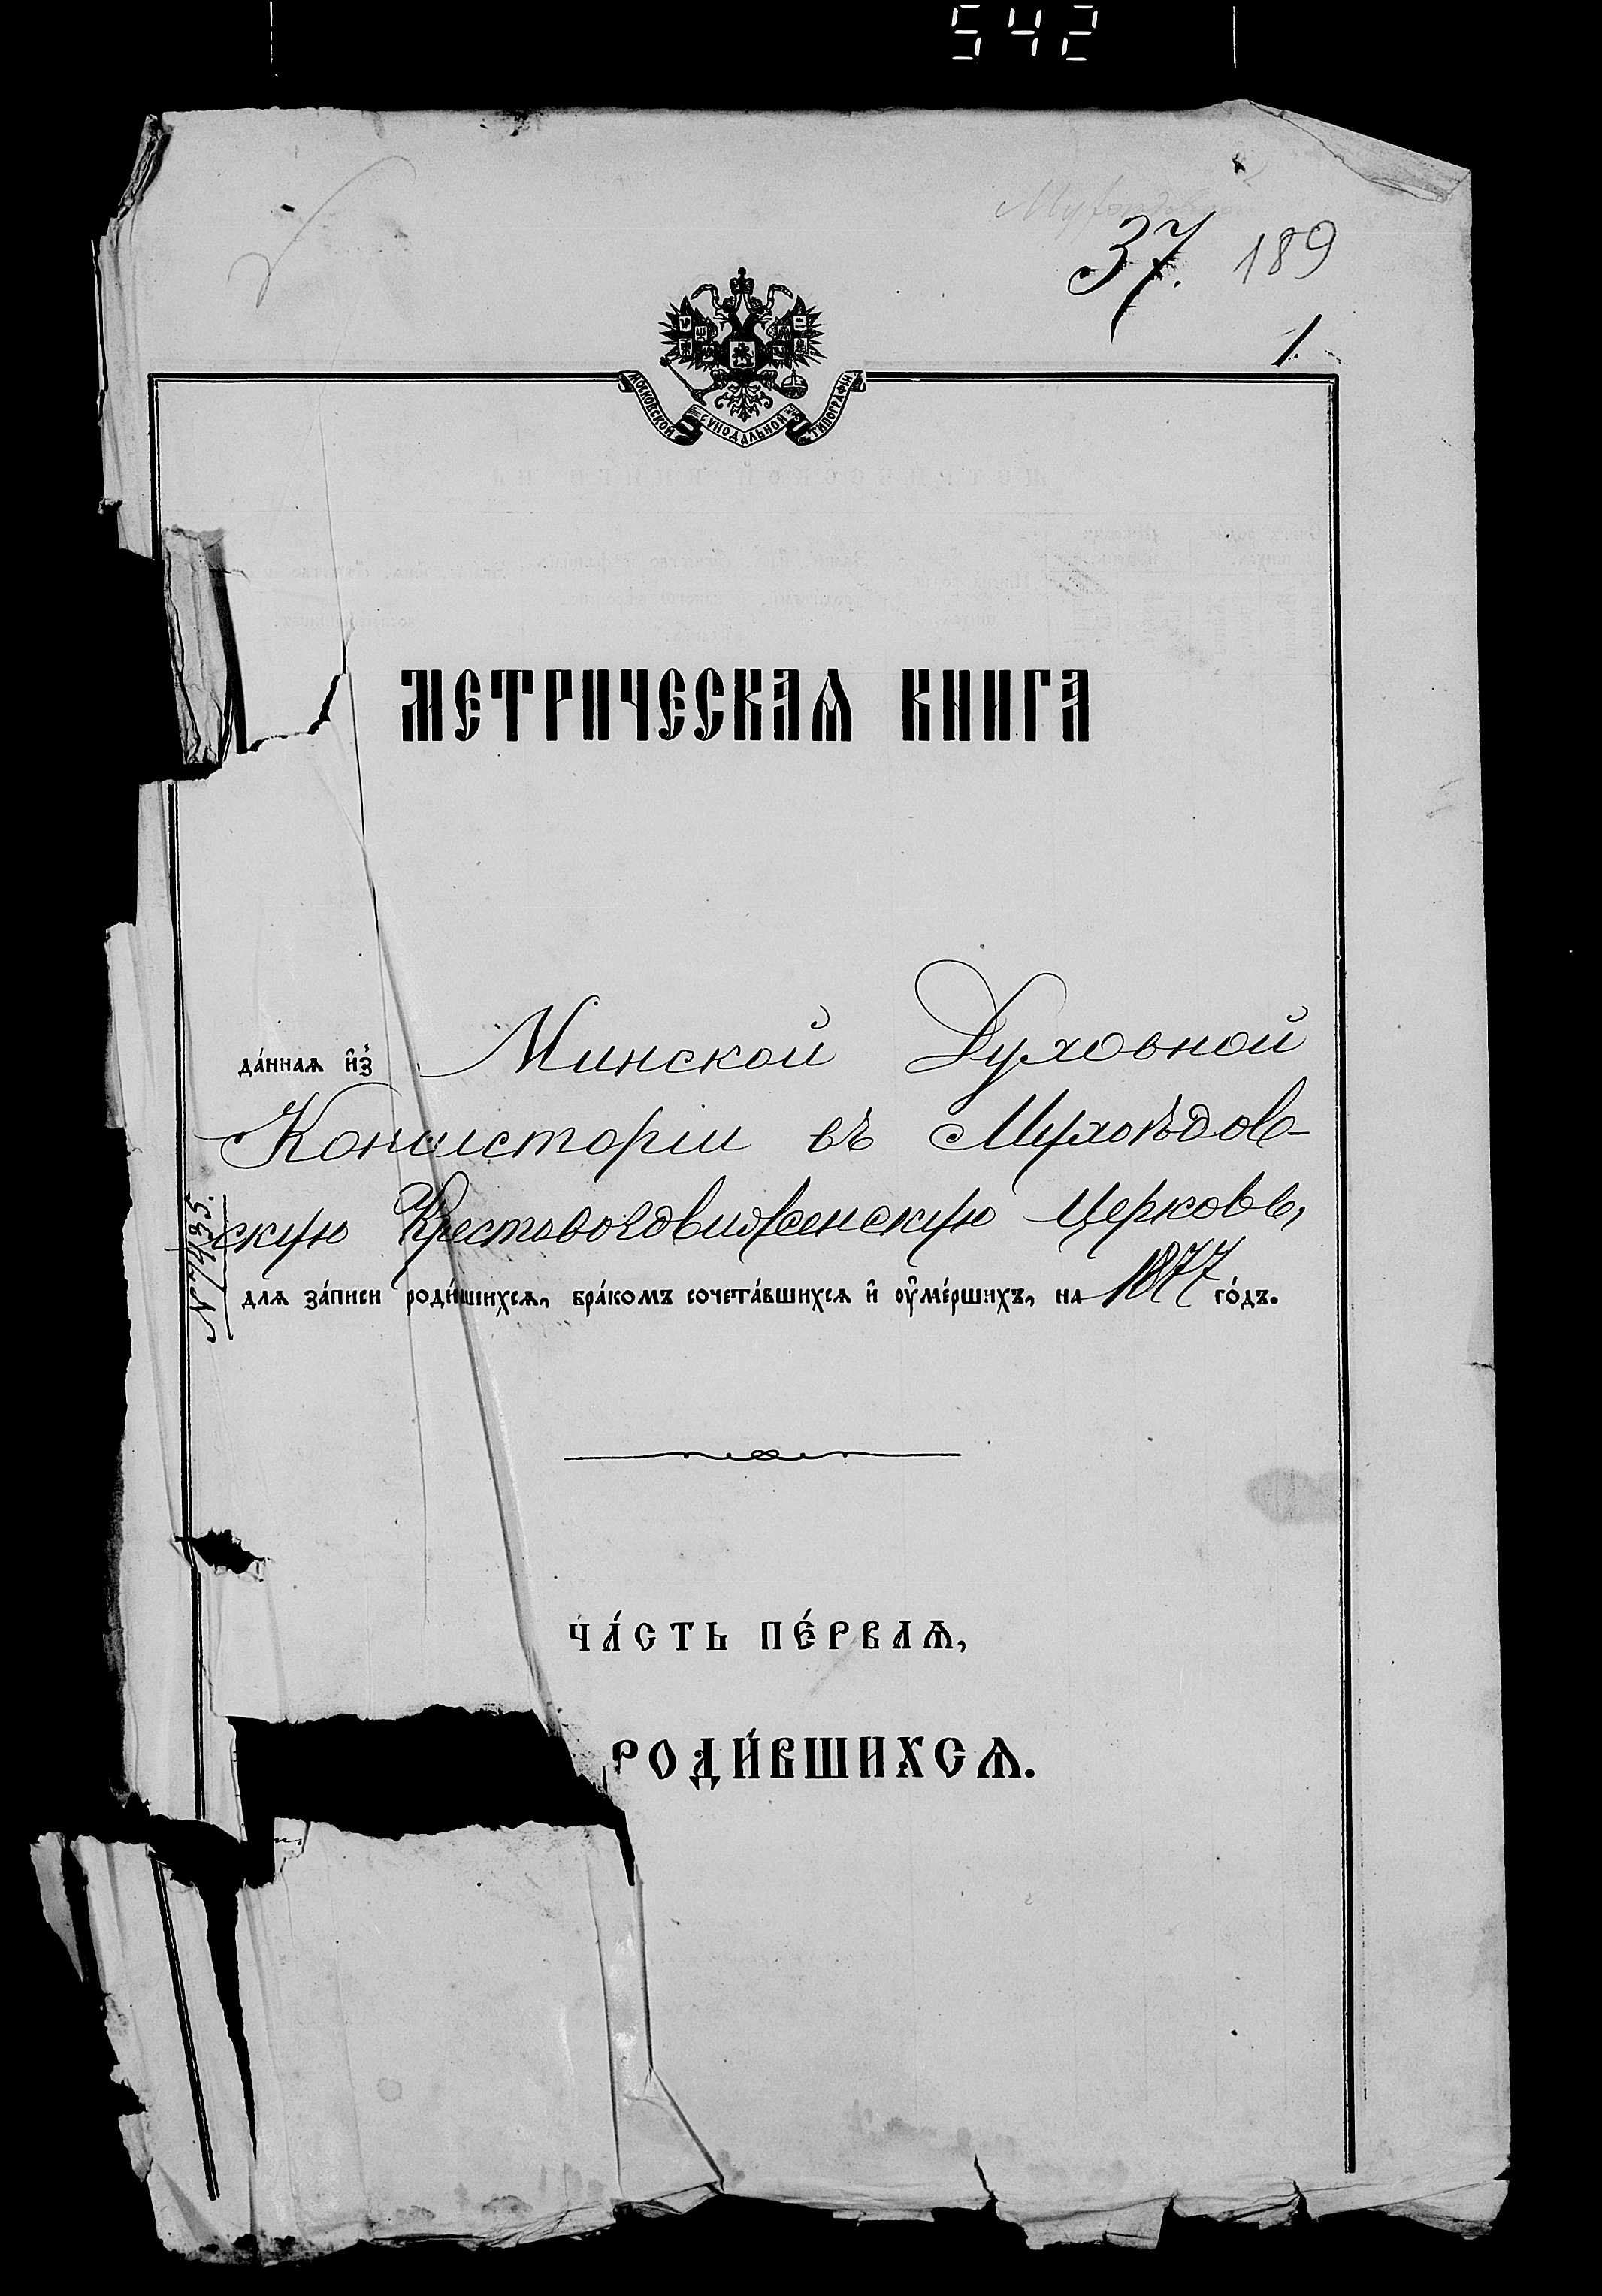 542
37. 189
1.
МОСКОВСКОЙ СѴНОДАЛЬНОЙ ТИПОГРАФІИ
МЕТРИЧЕСКАѦ КНИГА
да́ннаѧ и҆з̾ Минской Духовной
Консисторіи въ Мухоѣдов-
скую Крестовоздвиженскую Церковь,
№ 7435.
для за́писи роди́вшихсѧ, бра́комъ сочета́вшихсѧ и҆ оу҆ме́ршихъ, на 1877 го́дъ.
ЧА́СТЬ ПЕ́РВАѦ,
РОДИ́ВШИХСѦ.